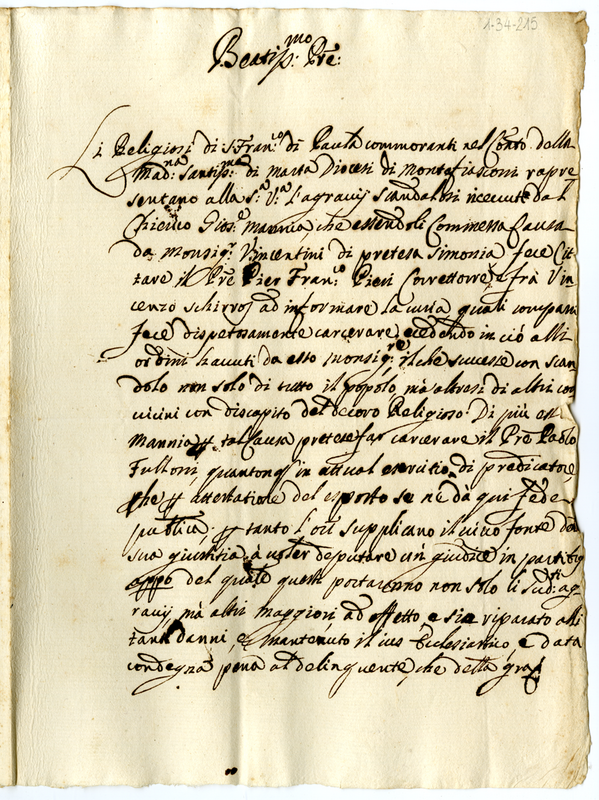 1-34-215
Beatiss:mo Pre:
Li Religiosi di S. Fran:co di Paula commoranti nel Conto della
Mad:na Santiss:ma di Marta Diocesi di Montefiasconi rapre
sentano alla S:a V:a l'agravij scandalosi ricevuti dal
Gios:o Mannia, che essendoli Commessa Causa
da Monsig:r Vincentini di pretesa Simonia fece Cit
tare il Pre Pier Fran:co Pieri Correttorre, e frà Vin
cenzo Schirrosi ad informare la curia quali comparsi
fece carcerare, ecedendo in ciò alli
ordini havuti da esso Monsig:re il che successe con scan
dolo non solo di tutto il popolo, mà altresi di altri con
vicini con discapito del decoro Religioso. Di più esso
Mannia p tal Causa pretese far carcerare il Pre Paolo
Fulloni, in attual esercitio di predicatore,
che p attestatione del esposto se nè dà qui fede
publica; p tanto l'ori supplicano il vivo fonte della
sua giustitia à voler deputare un giudice in partibus
appo del quale questi portaranno non solo li sud:ti ag
ravij, mà altri maggiori, ad effetto e sia riparato alli
tanti danni, e mantenuto il ius Ecclesiastico, e data
condegna pena al delinquente, che della graz